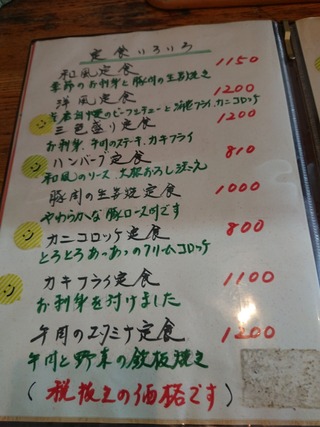 定食いろいろ
和風定食 1150
季節のお刺身と豚肉の生姜焼き
洋風定食 1200
ビーフシチューと海老フライ.カニコロッケ
三色盛り定食 1200
お刺身.牛肉のステーキ.カキフライ
ハンバーグ定食 810
和風のソース.大根おろし添え
豚肉の生姜焼定食 1000
やわらかな豚ロース肉です
カニコロッケ定食 800
とろとろあつあつのクリームコロッケ
カキフライ定食 1100
お刺身を付けました
牛肉のスタミナ定食 1200
牛肉と野菜の鉄板焼き
(税抜きの価格です)